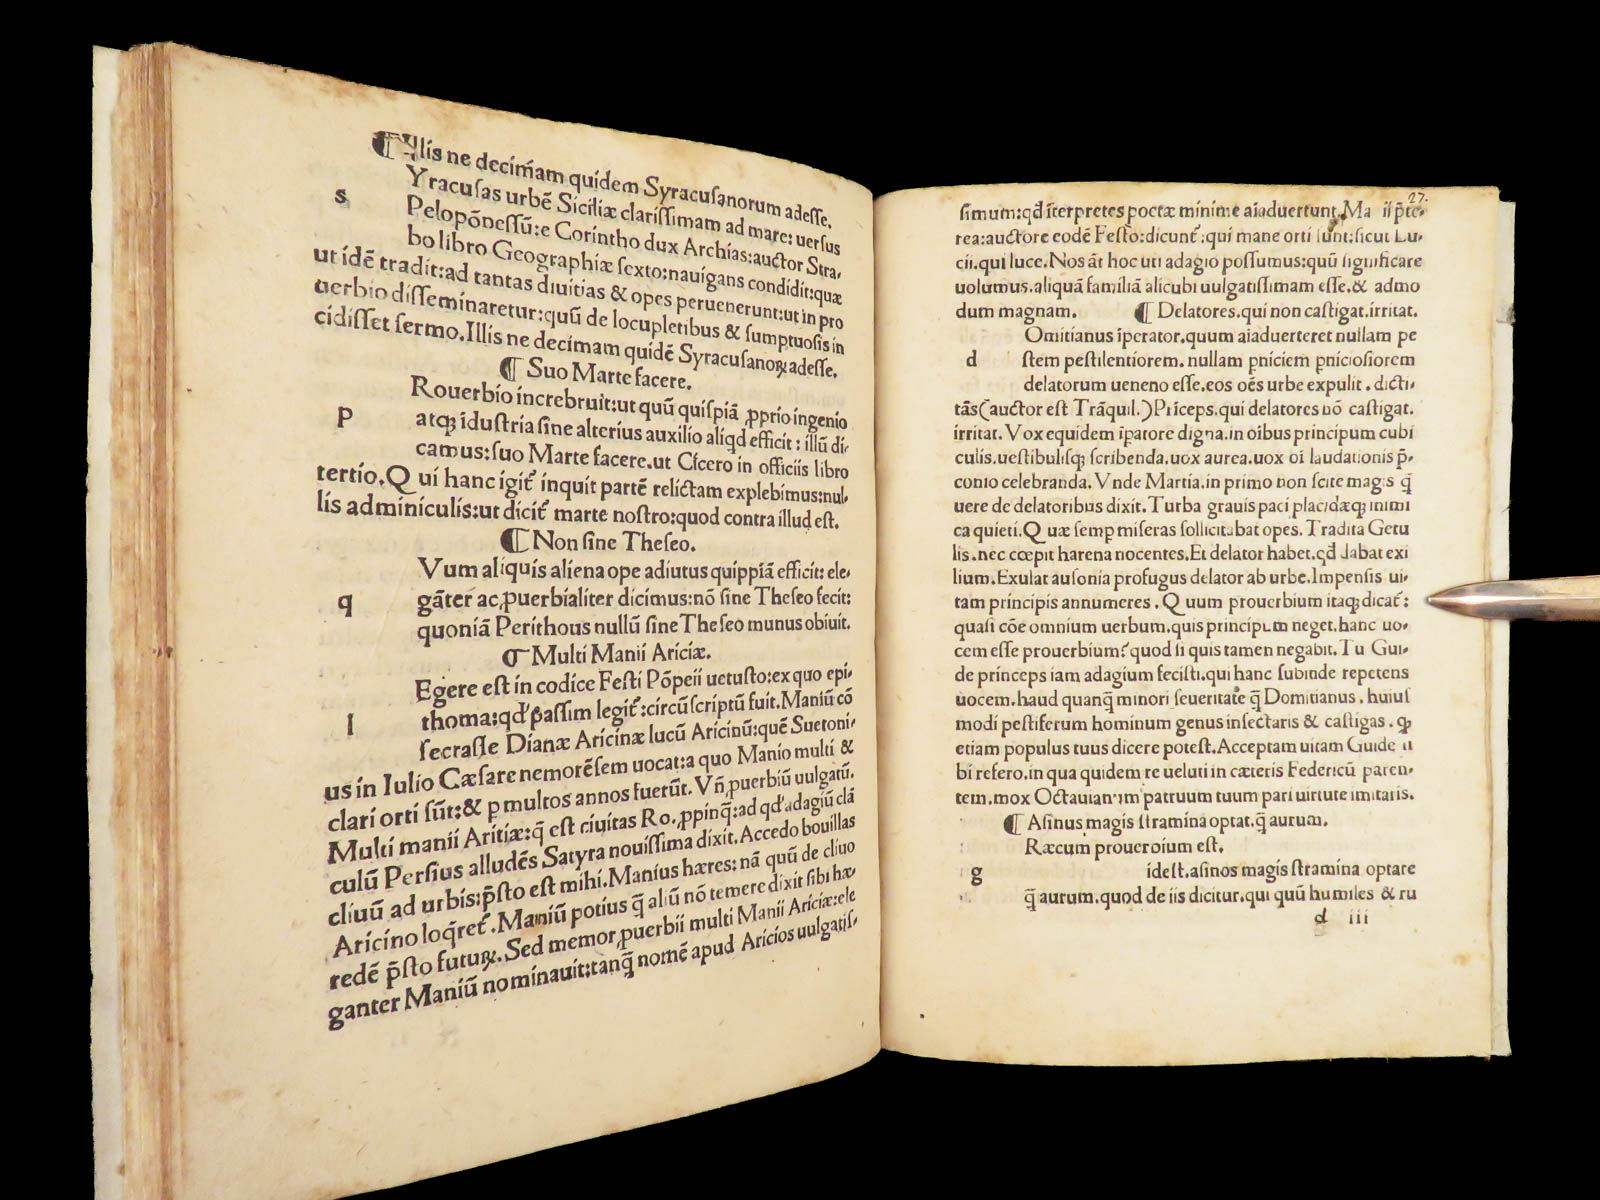 ¶ Illis ne decimam quidem Syracusanorum adesse.
s Yracusas urbē Siciliæ clarissimam ad mare: uersus
Pelopōnessū: e Corintho dux Archias: auctor Stra/
bo libro Geographiæ sexto: nauigans condidit: quæ
ut idē tradit: ad tantas diuitias & opes peruenerunt: ut in pro
uerbio disseminaretur: quū de locupletibus & sumptuosis in
cidisset sermo. Illis ne decimam quidē Syracusanoꝝ adesse.
¶ Suo Marte facere.
P Rouerbio increbruit: ut quū quispiā ꝓprio ingenio
atqꝫ īdustria sine alterius auxilio aliqd efficit: illū di/
camus: suo Marte facere. ut Cicero in officiis libro
tertio. Qui hanc igit̄ inquit partē relictam explebimus: nul/
lis adminiculis: ut dicit̄ marte nostro: quod contra illud est.
¶ Non sine Theseo.
q Vum aliquis aliena ope adiutus quippiā efficit: ele/
gāter ac ꝓuerbialiter dicimus: nō sine Theseo fecit:
quoniā Perithous nullū sine Theseo munus obiuit.
¶ Multi Manii Ariciæ.
l Egere est in codice Festi Pōpeii uetusto: ex quo epi/
thoma: qd̄ passim legit̄: circūscriptū fuit. Maniū cō
secrasse Dianæ Aricinæ lucū Aricinū: quē Suetoni/
us in Iulio Cæsare nemorēsem uocat: a quo Manio multi &
clari orti sūt: & ꝑ multos annos fuerūt. Vn̄ ꝓuerbiū uulgatū.
Multi manii Aritiæ: q̄ est ciuitas Ro. ꝓpinq̄: ad qd̄ adagiū clā
culū Persius alludēs Satyra nouissima dixit. Accedo bouillas
cliuū ad urbis: p̄sto est mihi. Manius hæres: nā quū de cliuo
Aricino loq̄ret̄. Maniū potius q̄ aliū nō temere dixit sibi hæ/
redē p̄sto futuꝝ. Sed memor ꝓuerbii multi Manii Ariciæ: ele
ganter Maniū nominauit: tanq̄ nomē apud Aricios uulgatis/
27.
simum: qd̄ īterpretes poetæ minime aīaduertunt. p̄te/
rea: auctore eodē Festo: dicunt̄: qui mane orti sunt: sicut Lu/
cii. qui luce. Nos āt hoc uti adagio possumus: quū significare
uolumus. aliquā familiā alicubi uulgatissimam esse. & admo
dum magnam. ¶ Delatores. qui non castigat. irritat.
d Omitianus īperator. quum aīaduerteret nullam pe
stem pestilentiorem. nullam ꝑniciem ꝑniciosiorem
delatorum ueneno esse. eos oēs urbe expulit. dicti/
tās (auctor est Trāquil.) Priceps. qui delatores nō castigat.
irritat. Vox equidem īpatore digna. in oībus principum cubi
culis. uestibulisqꝫ scribenda. uox aurea. uox oī laudationis p̄/
conio celebranda. Vnde Martia. in primo non scite magis q̄
uere de delatoribus dixit. Turba grauis paci placidæqꝫ inimi
ca quieti. Quæ semꝑ miseras sollicitabat opes. Tradita Getu
lis. nec cœpit harena nocentes. Et delator habet. qd̄ dabat exi
lium. Exulat ausonia profugus delator ab urbe. Impensis ui/
tam principis annumeres. Quum prouerbium itaqꝫ dicat̄:
quasi cōe omnium uerbum. quis principum neget. hanc uo/
cem esse prouerbium? quod si quis tamen negabit. Tu Gui/
de princeps iam adagium fecisti. qui hanc subinde repetens
uocem. haud quanq̄ minori seueritate q̄ Domitianus. huius
modi pestiferum hominum genus insectaris & castigas. qꝫ
etiam populus tuus dicere potest. Acceptam uitam Guide ti
bi refero. in qua quidem re ueluti in cæteris Federicū paren/
tem. mox Octauianum patruum tuum pari uirtute imitaris.
¶ Asinus magis stramina optat. q̄ aurum.
g Ræcum prouerbium est.
idest. asinos magis stramina optare
q̄ aurum. quod de iis dicitur. qui quū humiles & ru
d iii